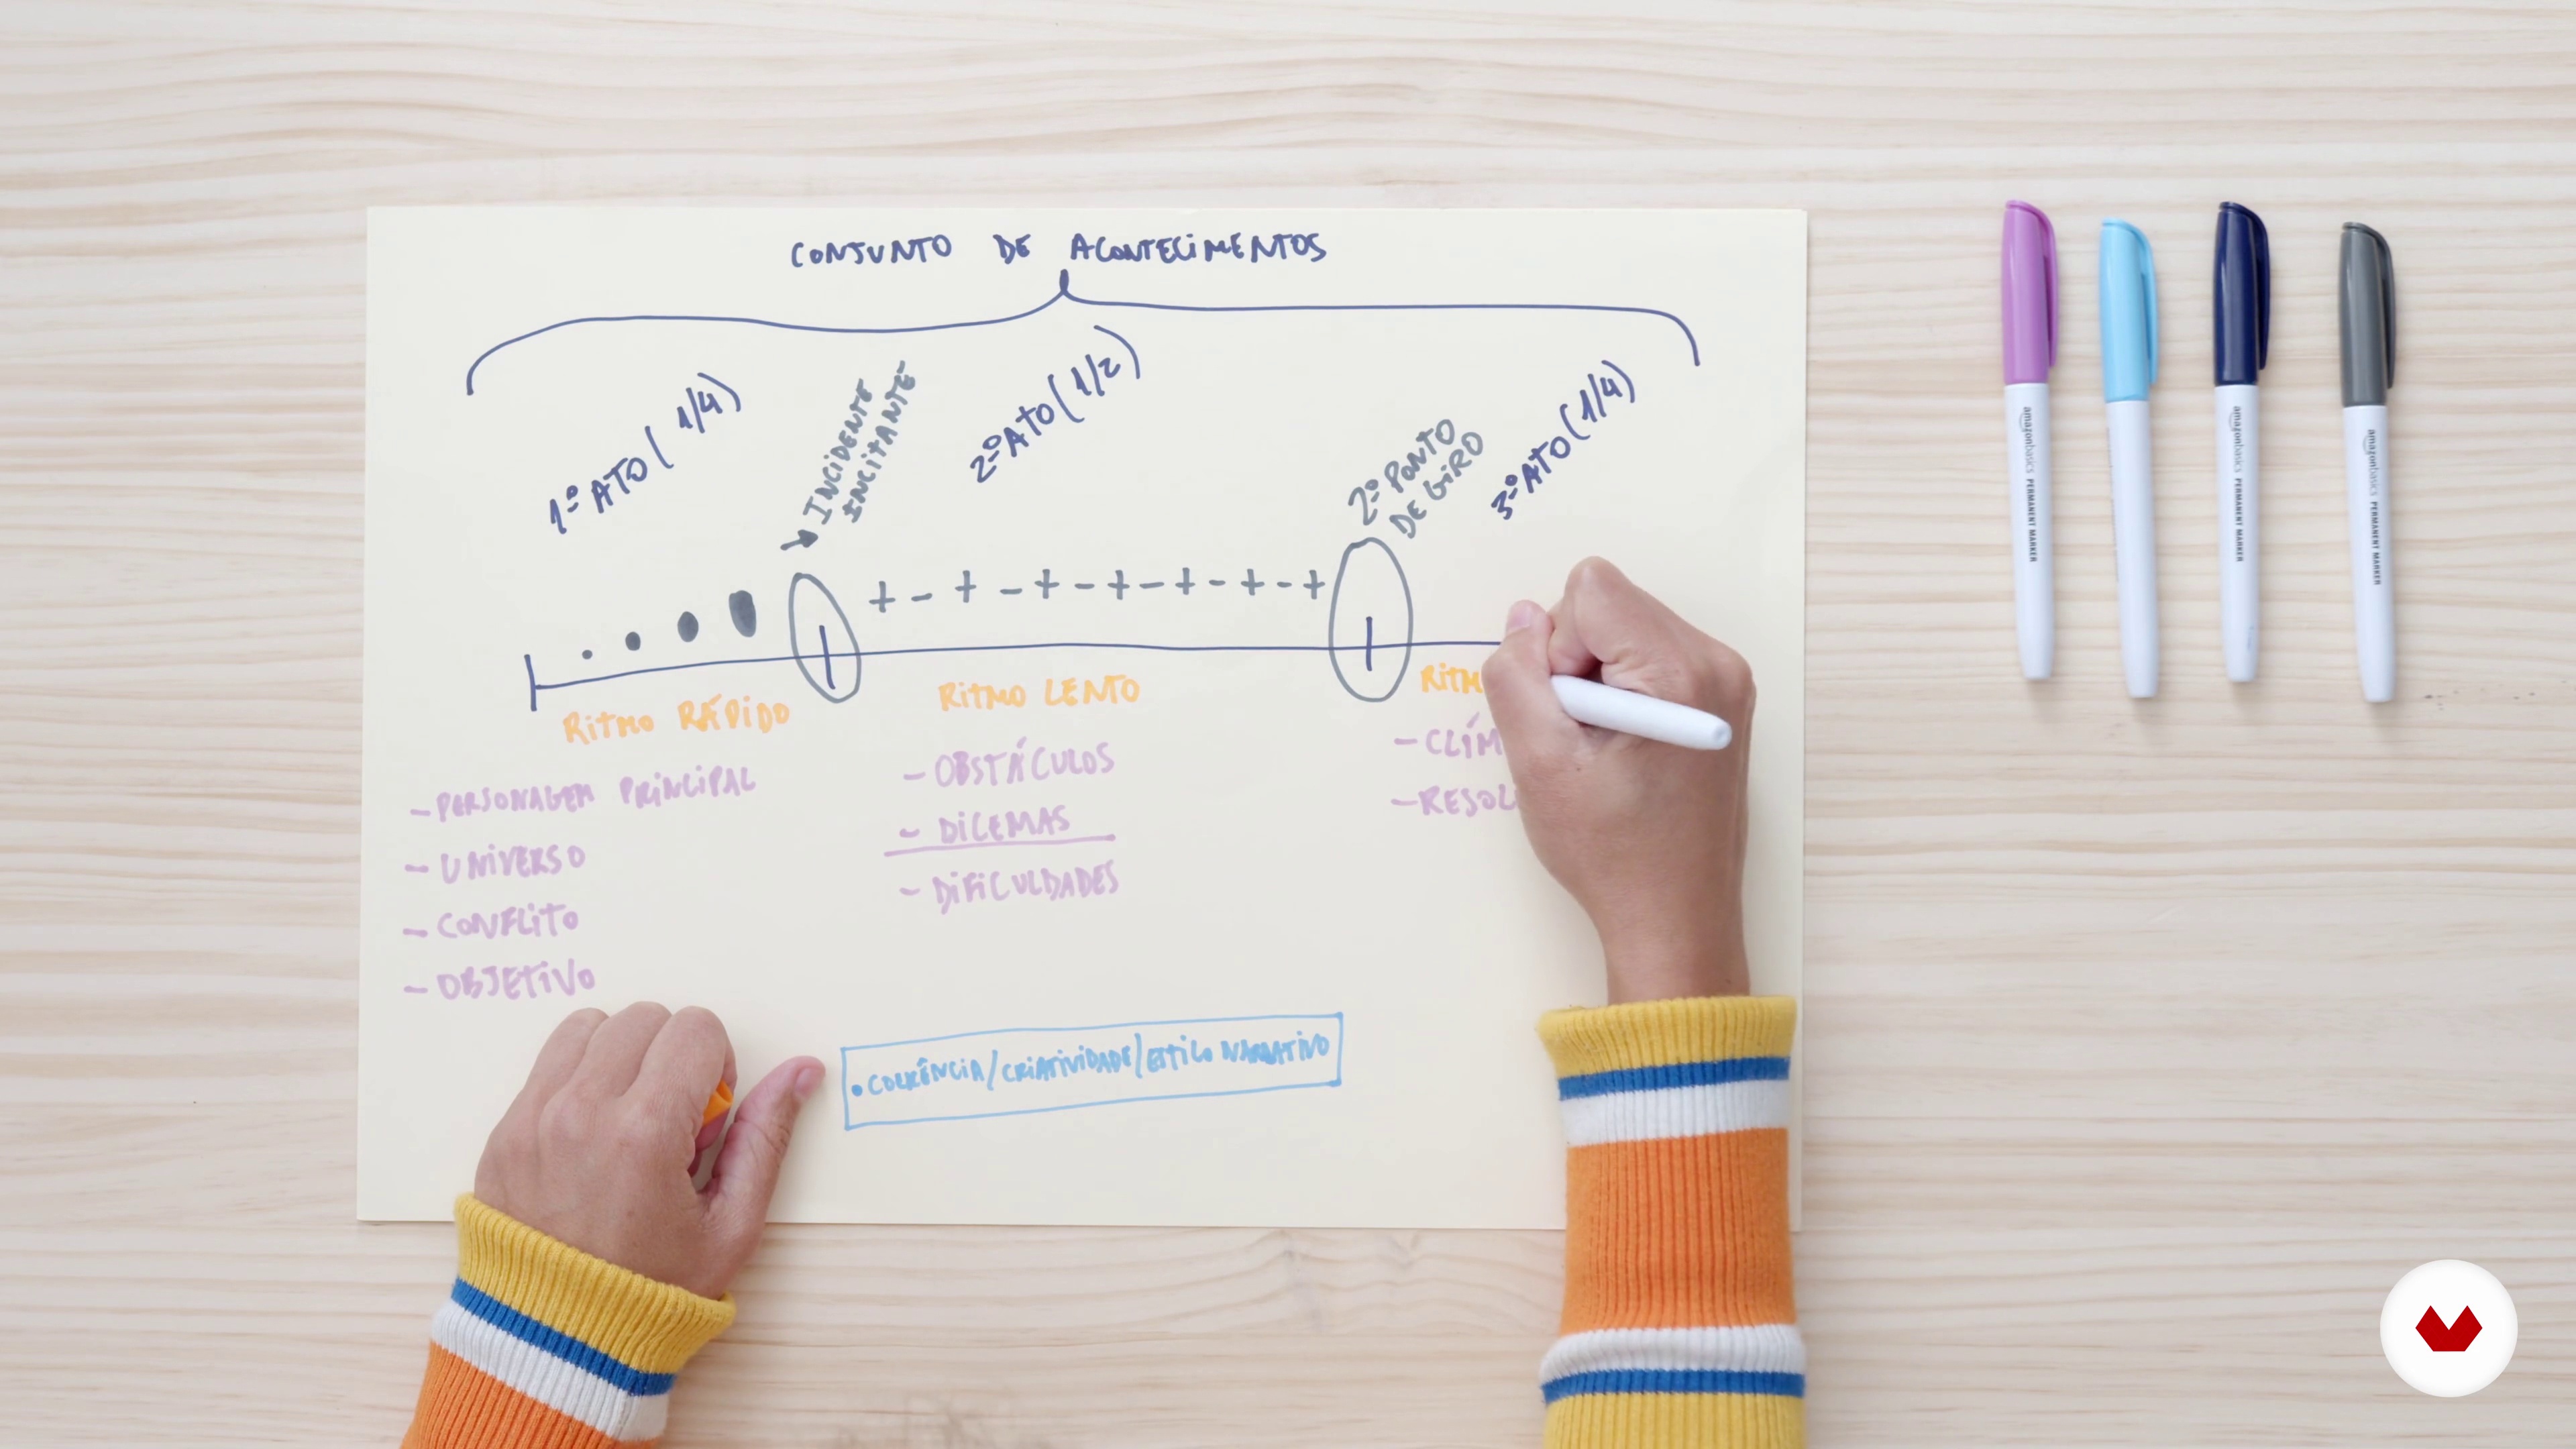 CONJUNTO DE ACONTECIMENTOS
1º ATO (1/4)
INCIDENTE
INCITANTE
2º ATO (1/2)
2º PONTO
DE GIRO
3º ATO (1/4)
+ - + - + - + - + - + - +
RITMO RÁPIDO
RITMO LENTO
RITM
- PERSONAGEM PRINCIPAL
- UNIVERSO
- CONFLITO
- OBJETIVO
- OBSTÁCULOS
- DILEMAS
- DIFICULDADES
- CLÍM
- RESOL
• COERÊNCIA/CRIATIVIDADE/ESTILO NARRATIVO
amazonbasics PERMANENT MARKER
amazonbasics PERMANENT MARKER
amazonbasics PERMANENT MARKER